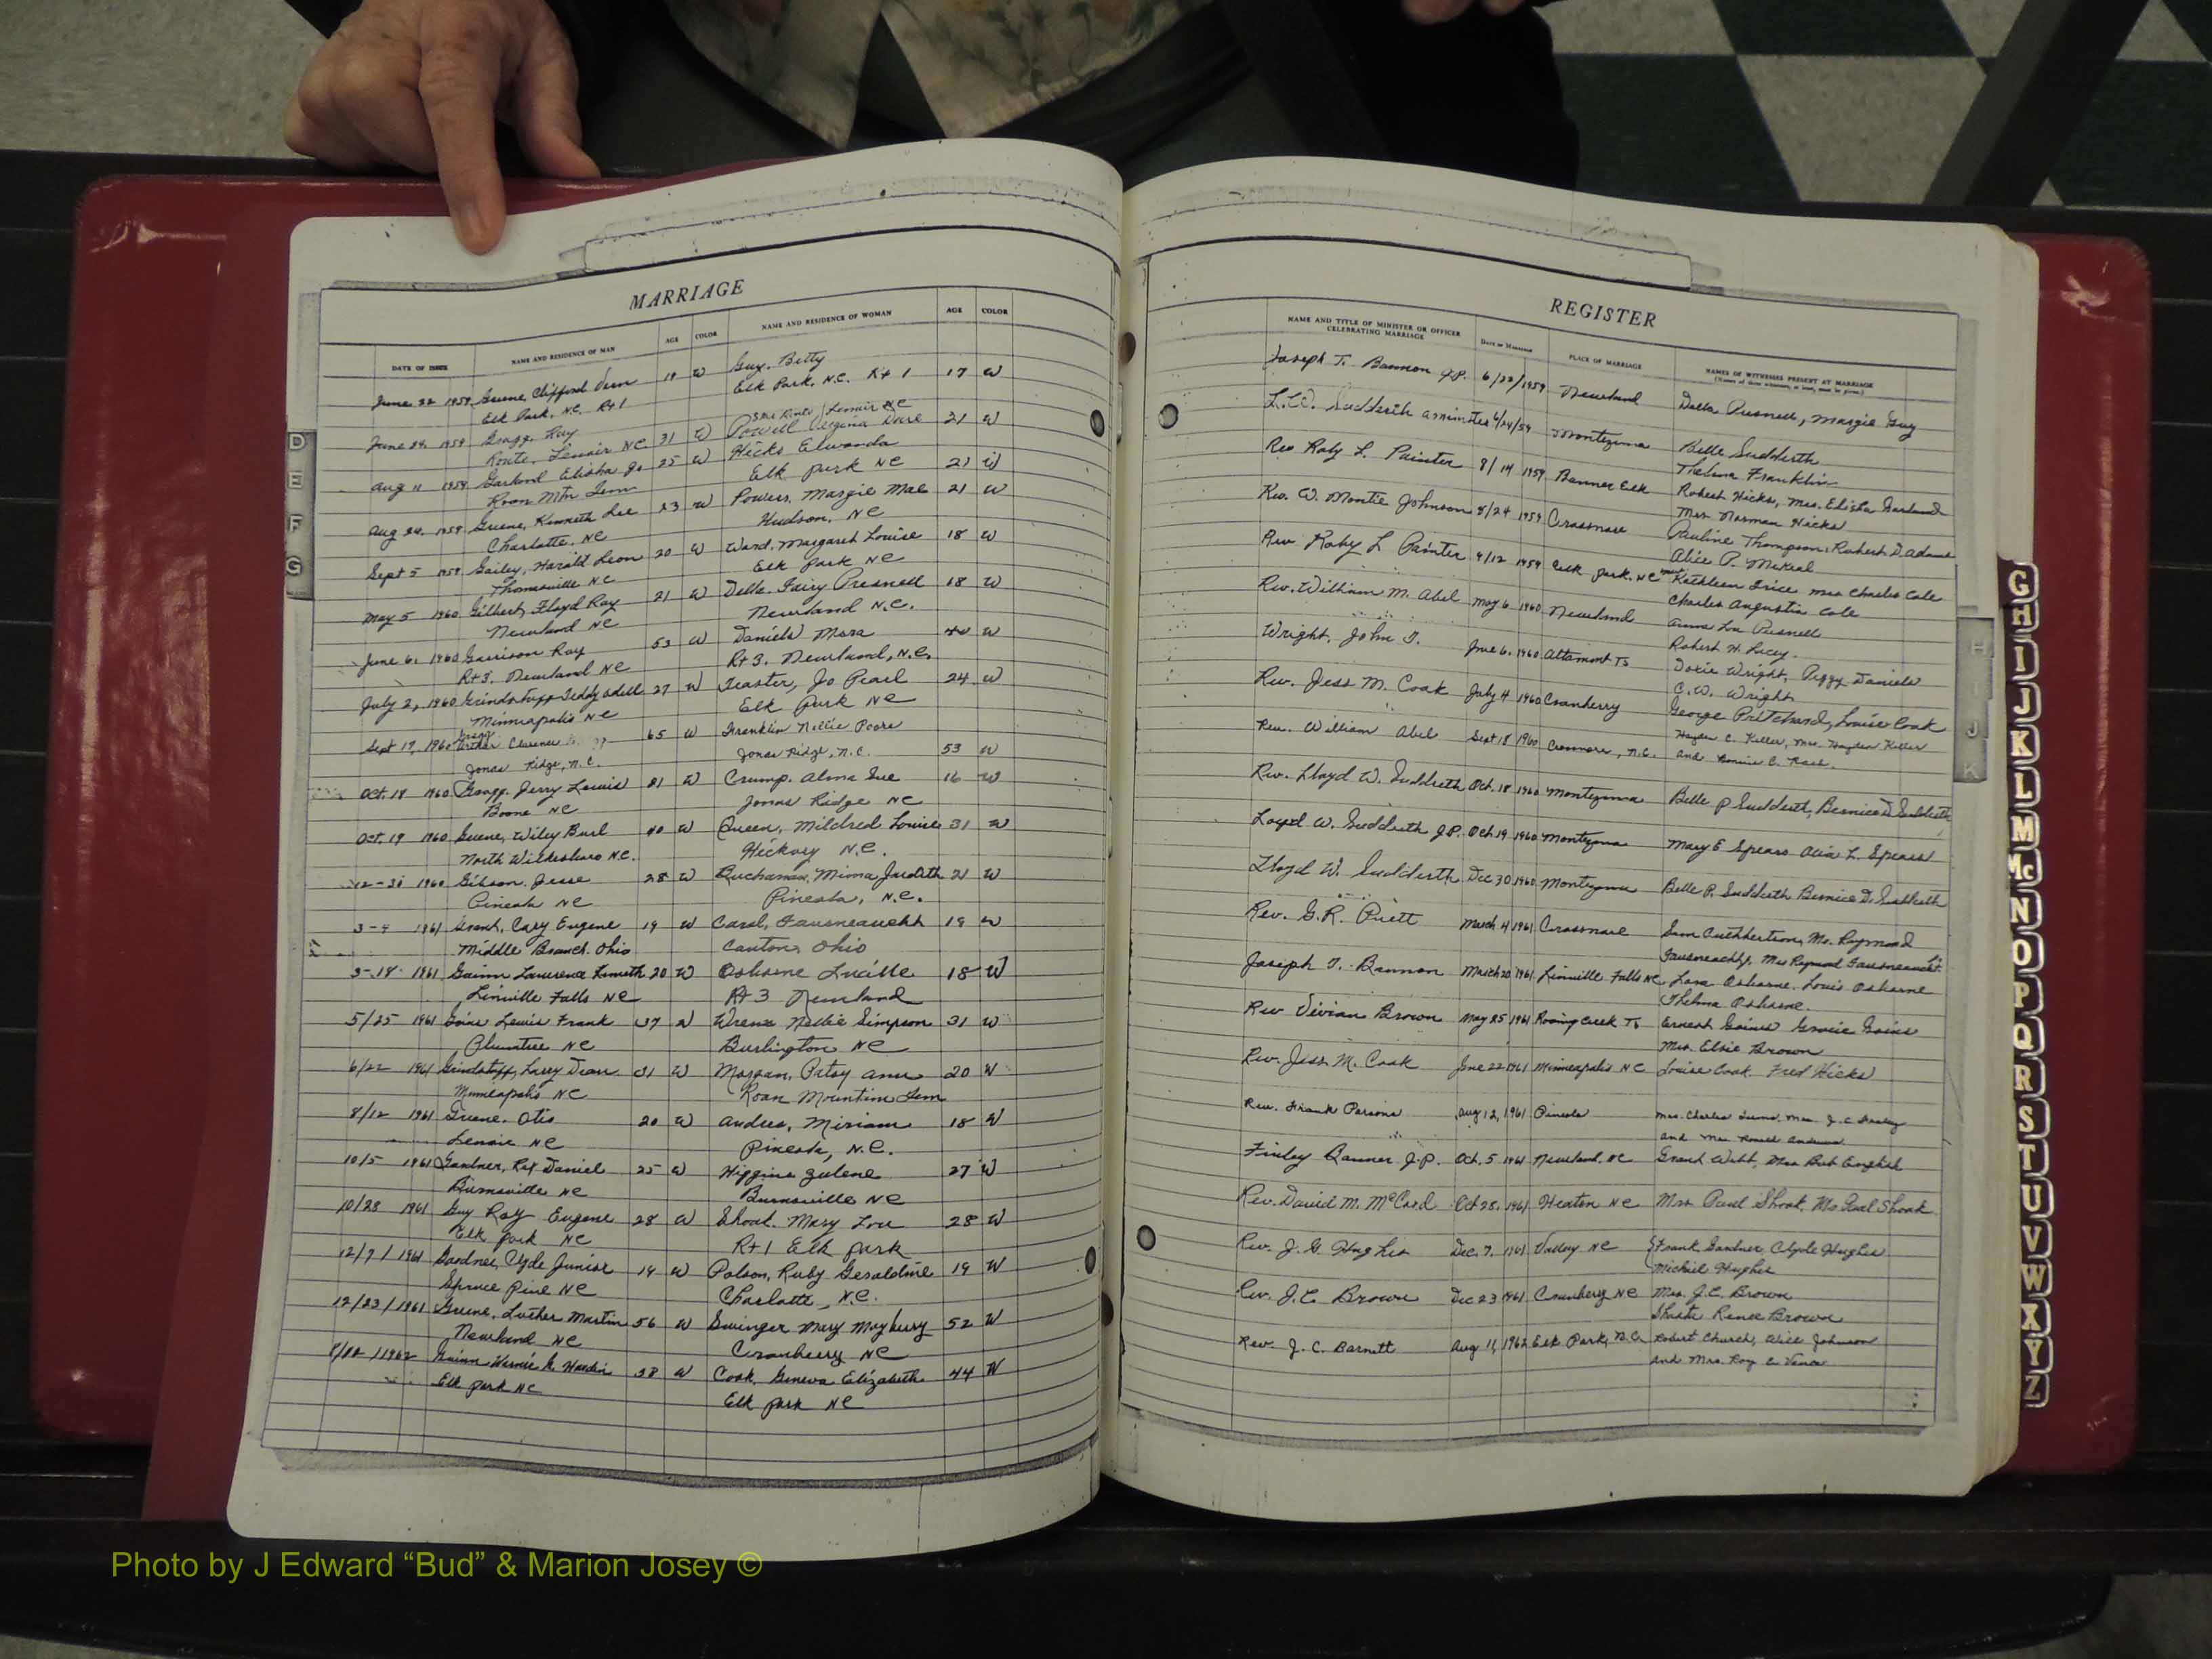 MARRIAGE
DATE OF ISSUE NAME AND RESIDENCE OF MAN AGE COLOR NAME AND RESIDENCE OF WOMAN AGE COLOR
June 22 1959 Greene Clifford Vern 19 W Guy, Betty 17 W
Elk Park, NC Rt 1 Elk Park, N.C. Rt 1
June 24, 1959 Gragg, Ray 31 W Powell Virginia Dare 21 W
Route, Lenoir NC Lenoir NC
Aug 11 1959 Garland Elisha Jr 25 W Hicks Elwanda 21 W
Roan Mtn Tenn Elk Park NC
Aug 24, 1959 Greene, Kenneth Lee 23 W Powers, Margie Mae 21 W
Charlotte, NC Hudson, NC
Sept 5 1959 Gailey, Harold Leon 20 W Ward, Margaret Louise 18 W
Thomasville NC Elk Park NC
May 5 1960 Gilbert, Floyd Ray 21 W Della Fairy Presnell 18 W
Newland NC Newland N.C.
June 6, 1960 Garrison Ray 53 W Daniels Mara 40 W
Rt 3, Newland NC Rt 3, Newland, N.C.
July 2, 1960 Grindstaff Teddy Odell 27 W Teaster, Jo Pearl 24 W
Minneapolis NC Elk Park NC
Sept 17, 1960 Gragg Arthur Clarence 65 W Franklin Nellie Poore 53 W
Jonas Ridge, N.C. Jonas Ridge, N.C.
Oct. 18 1960 Gragg, Jerry Lewis 21 W Crump, Alma Sue 16 W
Boone NC Jonas Ridge NC
Oct. 19 1960 Greene, Wiley Burl 40 W Queen, Mildred Louise 31 W
North Wilkesboro N.C. Hickory N.C.
12-30 1960 Gibson, Jesse 28 W Buchanan, Mima Judith 21 W
Pineola NC Pineola, N.C.
3-4 1961 Grant, Cary Eugene 19 W Carol, Fausneaucht 19 W
Middle Branch Ohio Canton, Ohio
3-18 1961 Lawrence 20 W Osborne Lucille 18 W
Linville Falls NC Rt 3 Newland
5/25 1961 Goins Lewis Frank 37 W Nellie Simpson 31 W
Plumtree NC Burlington NC
6/22 1961 Grindstaff, Larry Dean 21 W Morgan, Patsy Ann 20 W
Minneapolis NC Roan Mountain Tenn
8/12 1961 Greene, Otis 20 W Andrea, Miriam 18 W
Lenoir NC Pineola, N.C.
10/5 1961 Gardner, Rex Daniel 25 W Higgins Zulene 27 W
Burnsville NC Burnsville NC
10/28 1961 Guy Ray Eugene 28 W Shook, Mary Lou 28 W
Elk Park NC Rt 1 Elk Park
12/7/1961 Gardner, Clyde Junior 19 W Polson, Ruby Geraldine 19 W
Spruce Pine NC Charlotte, N.C.
12/23/1961 Greene, Luther Martin 56 W Swinger Mary Mayberry 52 W
Newland NC Cranberry NC
1962 38 W Cook, Geneva Elizabeth 44 W
Elk Park NC Elk Park NC
REGISTER
NAME AND TITLE OF MINISTER OR OFFICER CELEBRATING MARRIAGE DATE OF MARRIAGE PLACE OF MARRIAGE NAMES OF WITNESSES PRESENT AT MARRIAGE
Joseph T. Bannon J.P. 6/22/1959 Newland Della Presnell, Margie Guy
L.W. Sudderth a minister 6/24/59 Montezuma Belle Sudderth
Thelma Franklin
Rev Roby L. Painter 8/14 1959 Banner Elk Robert Hicks, Mrs. Elisha Garland
Mrs Norman Hicks
Rev. W. Montie Johnson 8/24 1959 Crossnore Pauline Thompson, Robert D. Adams
Alice P. McNeal
Rev. Roby L Painter 9/12 1959 Elk Park, NC Kathleen Trice Mrs Charles Cole
Charles Augustin Cole
Rev. William M. Abel May 6 1960 Newland Anna Lou Presnell
Robert H. Lacey.
Wright, John T. June 6, 1960 Altamont Ts Doxie Wright, Peggy Daniels
C.W. Wright
Rev. Jess M. Cook July 4 1960 Cranberry George Pritchard, Louise Cook
Rev. William Abel Sept 18 1960 Crossnore, N.C. Hayden C. Keller, Mrs. Hayden Keller
and
Rev. Lloyd W. Sudderth Oct. 18 1960 Montezuma Belle P Sudderth, Bernice D Sudderth
Loyd W. Sudderth J.P. Oct 19 1960 Montezuma Mary E Spears Ovia L. Spears
Lloyd W. Sudderth Dec 30 1960 Montezuma Belle P. Sudderth Bernice D. Sudderth
Rev. G.R. Pruett March 4 1961 Crossnore Sam Cuthbertson, Mr. Raymond
Fausneaucht, Mrs Raymond Fausneaucht
Joseph T. Bannon March 20 1961 Linville Falls NC Lara Osborne, Louis Osborne
Thelma Osborne.
Rev Vivian Brown May 25 1961 Roaring Creek Ts Ernest Goins Gracie Goins
Mrs. Elsie Brown
Rev. Jess M. Cook June 22 1961 Minneapolis NC Louise Cook Fred Hicks
Rev. Frank Parsons Aug 12, 1961 Pineola Mrs. Charles Mrs. J.C.
and Mrs
Finley Banner J.P. Oct. 5 1961 Newland, NC Grant Webb, Mrs Bob English
Rev. David M. McCord Oct 28, 1961 Heaton NC Mrs Paul Shook, Mr. Paul Shook
Rev. J. G Hughes Dec. 7, 1961 Valley NC Frank Gardner, Clyde Hughes
Michael Hughes
Rev. J.C. Brown Dec 23 1961 Cranberry NC Mrs. J.C. Brown
Renee Brown
Rev. J. C. Barnett Aug 11, 1962 Elk Park, N.C. Robert Church, Alice Johnson
and Mrs. Roy E. Vance
D
E
F
G
H
J
K
G
H
I
J
K
L
M
Mc
N
O
P
Q
R
S
T
U
V
W
X
Y
Z
Photo by J Edward “Bud” & Marion Josey ©